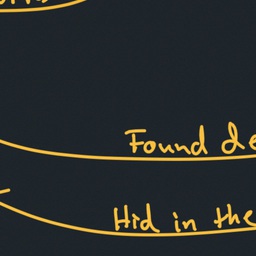 Found de
Hid in the